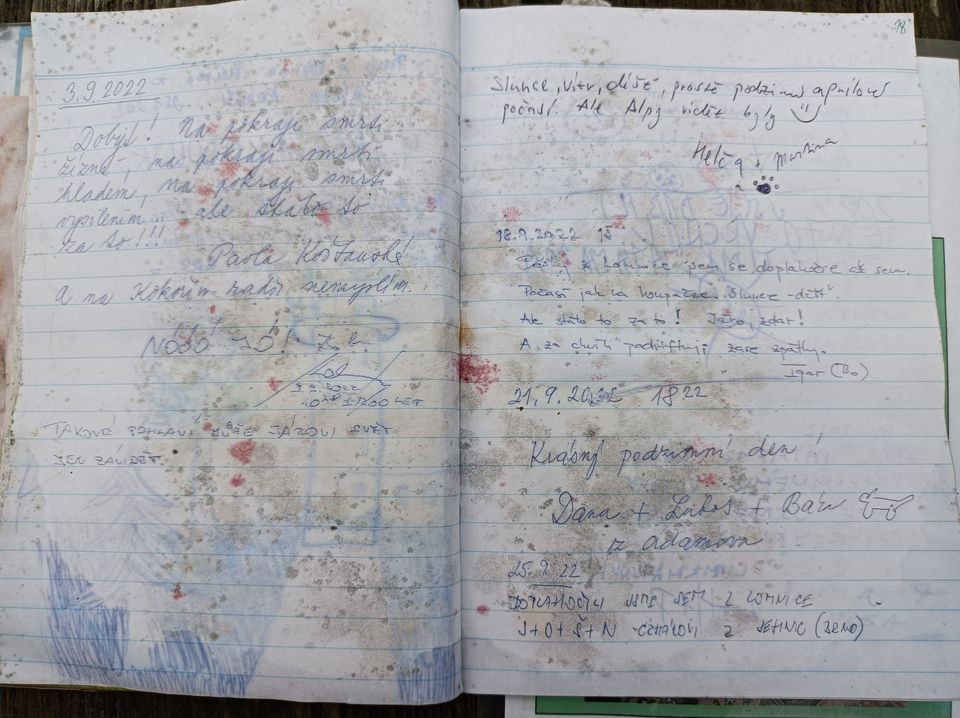 3.9.2022
Dobyto! Na pokraji smrti
žízně, na pokraji smrti
hladem, na pokraji smrti
vysílením... ale stálo to
za to!!!
Pavla
A na Kokořín raději nemyslím.
NÓBÓ JÓ!
3.9.2022
TAKOVÉ POHLAVÍ MŮŽE JÁROVI SVĚT
JEN ZÁVIDĚT.
18
Slunce, vítr, déšť, prostě podzimní aprílové
počasí. Ale Alpy vidět byly
+ Martina
18.9.2022 15
Pěšky z Lomnice jsem se doplahočil až sem.
Počasí jak na houpačce. Slunce - déšť.
Ale stálo to za to! Járo, zdar!
A za chvíli zase zpátky.
Igor (Bo)
21.9.2022 18 22
Krásný podzimní den
Dana + Luboš + Bára
z Adamova
25.9.22
DOPLAHOČILI JSME SEM Z LOMNICE
J+O+Š+N Z JEHNIC (BRNO)